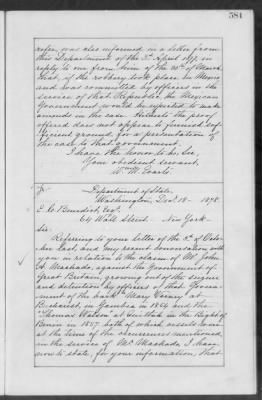 584
refer, was also informed in a letter from
this Department of the 3d April 1877, in
reply to one from him of the 20th of March
that, if the robbery took place in Mexico
and was committed by officers in the
service of that Republic, the Mexican
Government would be expected to make
amends in the case. Hitherto the proof
offered does not appear to furnish suf-
ficient ground, for a presentation of
the case to that government.
I have the honor to be, Sir,
Your obedient servant,
Wm. M. Evarts.
Department of State,
Washington, Decr. 18 1878.
E. C. Benedict, Esqr.
64 Wall Street. New York.
Sir:
Referring to your letter of the 3d of Octo-
ber last, and my recent conversation with
you in relation to the claim of Mr. John
A. Machado, against the Government of
Great Britain, growing out of the seizure
and detention by officers of that Govern-
ment of the bark "Mary Varney" at
Bathurst, in Gambia in 1864 and the
"Thomas Watson" at in the Bight of
Benin in 1857 both of which vessels were
at the time of the occurrences mentioned,
in the service of Mr. Machado, I have
now to state, for your information, that